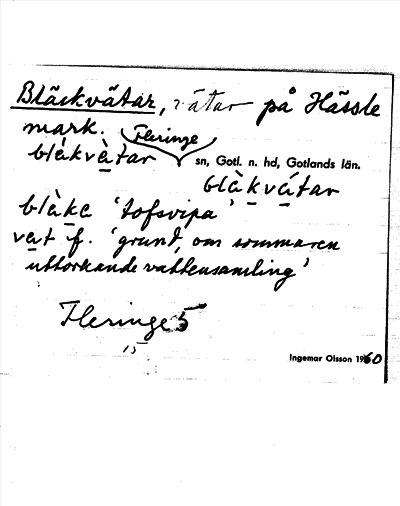 Bläckvätar, vätar på Hässle
mark.
Fleringe
blàkvàtar sn, Gotl. n. hd, Gotlands län.
blàkvátar
blàkc 'tofsvipa'
vat f. 'grund, om sommaren
uttorkande vattensamling'
Fleringe 5
15
Ingemar Olsson 1960